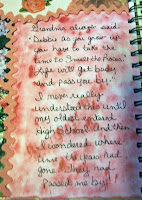 Grandma always said:
"Debbie as you grow up
you have to take the
time to smell the roses.
Life will get busy
and pass you by."
I never really
understood this until
my oldest entered
High School. And then
I wondered where
time the years had
gone. They had
passed me by!